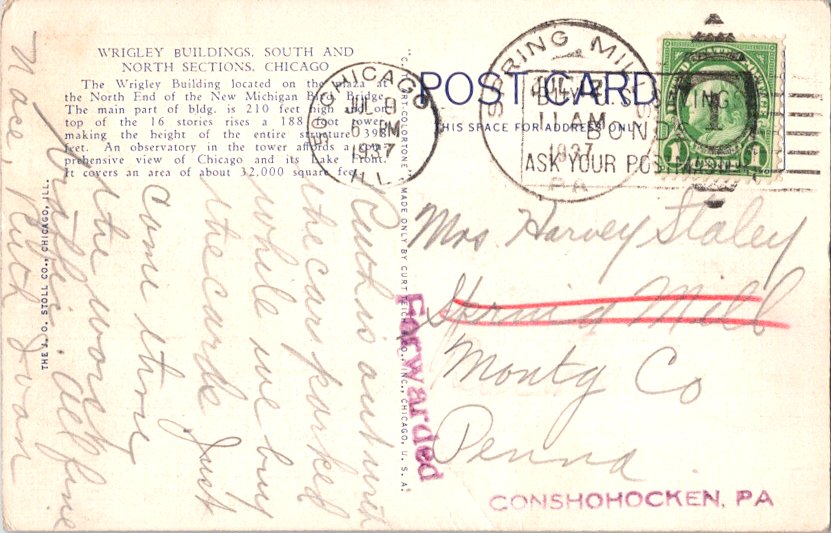 WRIGLEY BUILDINGS, SOUTH AND
NORTH SECTIONS, CHICAGO
The Wrigley Building located on the plaza at
the North End of the New Michigan Blvd. Bridge.
The main part of bldg. is 210 feet high and on
top of the 16 stories rises a 188 foot tower,
making the height of the entire structure 398
feet. An observatory in the tower affords a com-
prehensive view of Chicago and its Lake Front.
It covers an area of about 32,000 square feet.
THE J. O. STOLL CO., CHICAGO, ILL.
Ruth is out with
the cars parked
while we buy
the cards Just
come thru
the worst
traffic. All fine
Nace, Ruth Jvan
"C.T. ART-COLORTONE", MADE ONLY BY CURT TEICH & CO., INC., CHICAGO, U.S.A.
POST CARD
THIS SPACE FOR ADDRESS ONLY
CHICAGO
JUL 9
6 PM
1937
ILL
SPRING MILLS
JUL 12
11 AM
1937
PA
BONDS
ASK YOUR POSTMASTER
1
Mrs Harvey Staley
Spring Mill
Montg Co
Penna.
Forwarded
CONSHOHOCKEN, PA